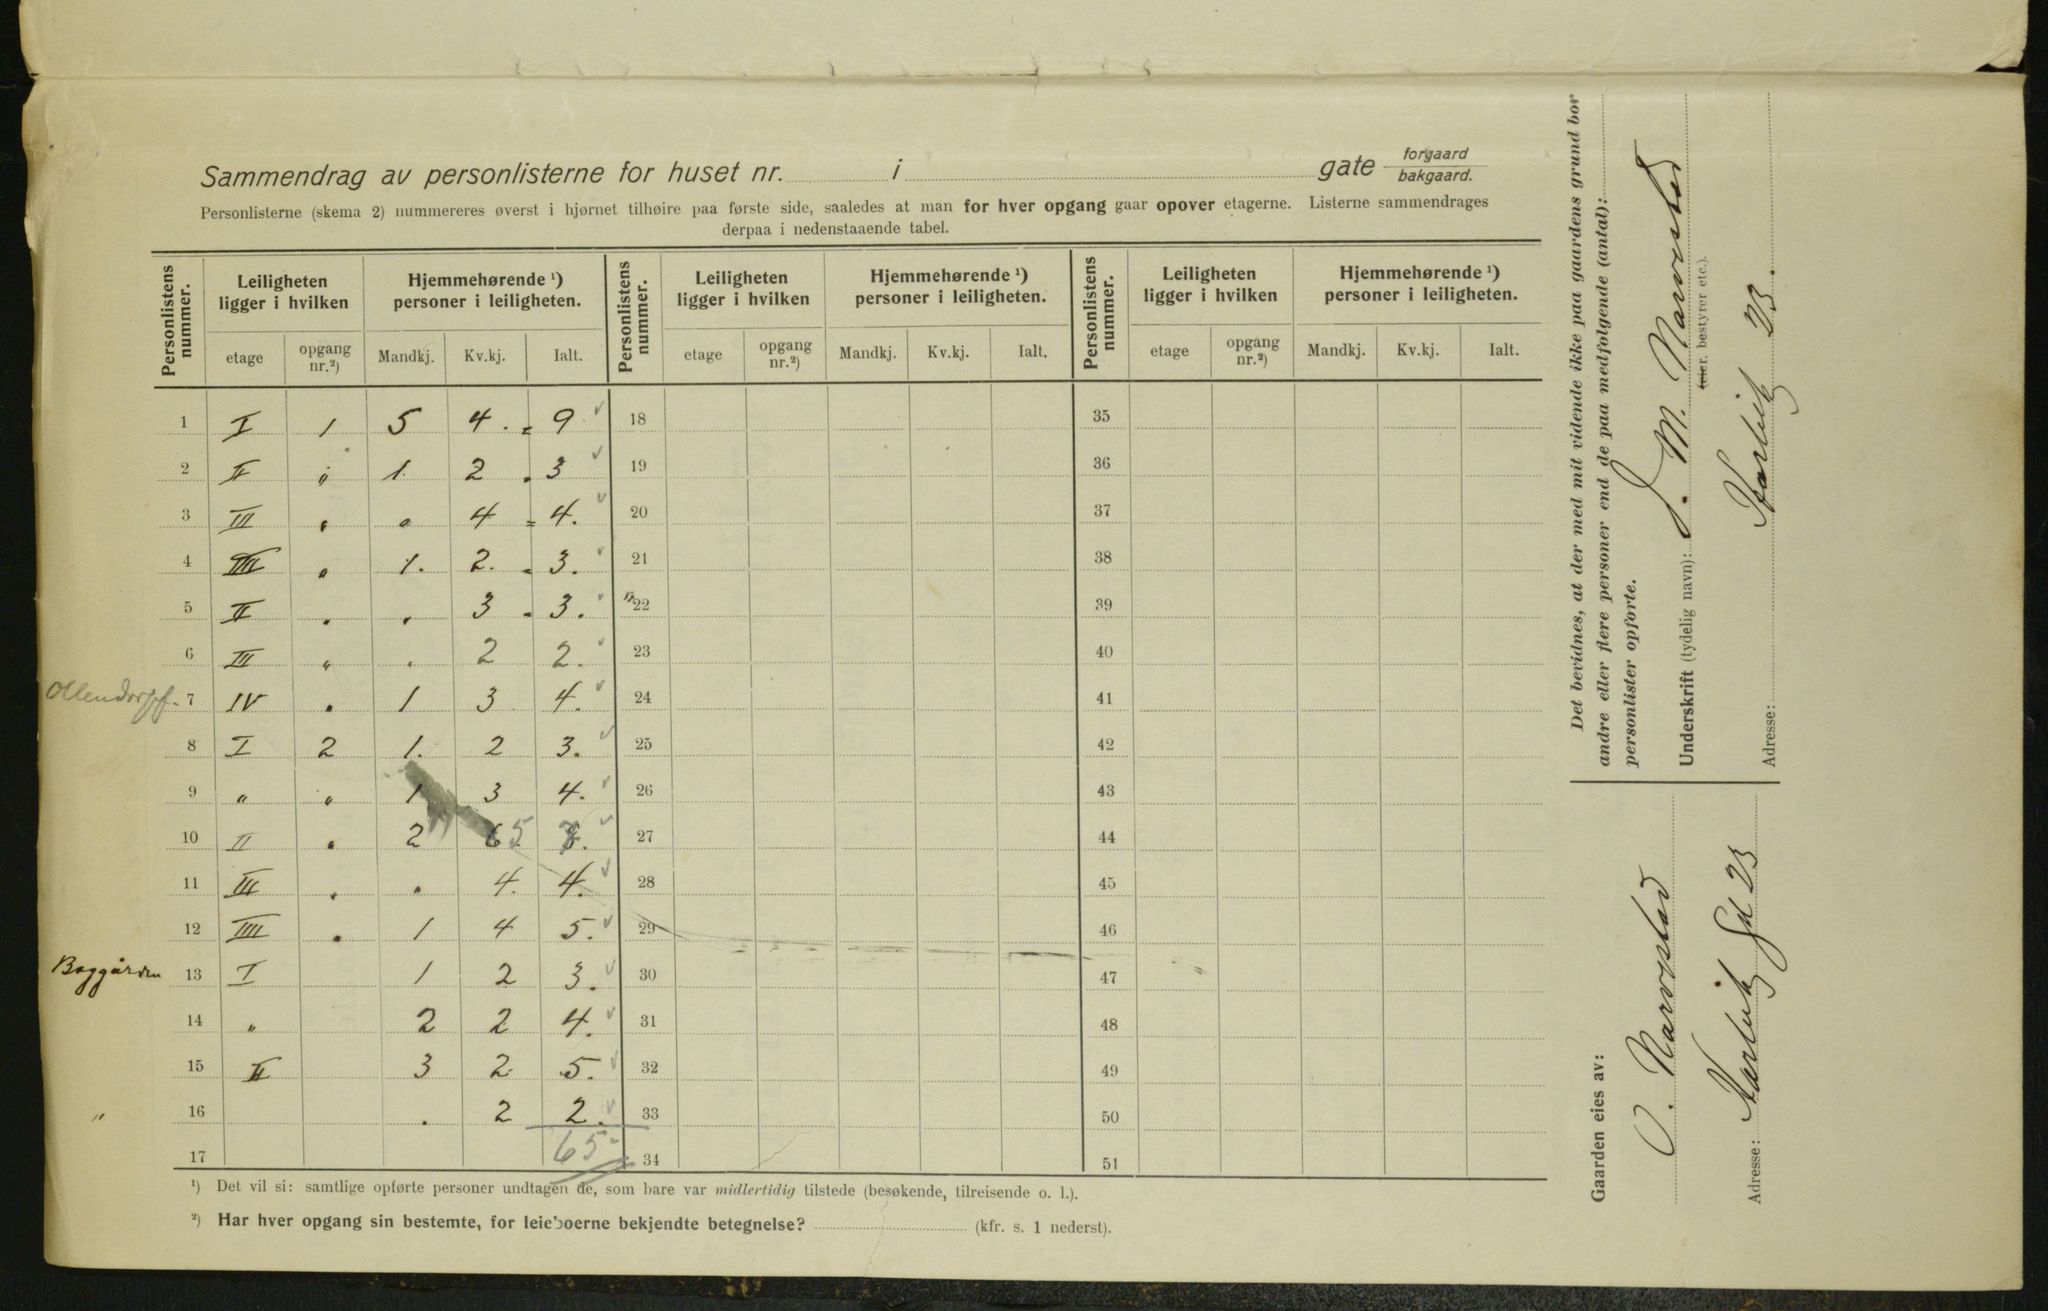 Sammendrag av personlisterne for huset nr. i gate forgaard bakgaard.
Personlisterne (skema 2) nummereres øverst i hjørnet tilhøire paa første side, saaledes at man for hver opgang gaar opover etagerne. Listerne sammendrages
derpaa i nedenstaaende tabel.
Personlistens nummer. Leiligheten ligger i hvilken Hjemmehørende ¹) personer i leiligheten. Personlistens nummer. Leiligheten ligger i hvilken Hjemmehørende ¹) personer i leiligheten. Personlistens nummer. Leiligheten ligger i hvilken Hjemmehørende ¹) personer i leiligheten.
etage opgang nr.²) Mandkj. Kv.kj. Ialt. etage opgang nr.²) Mandkj. Kv.kj. Ialt. etage opgang nr.²) Mandkj. Kv.kj. Ialt.
1 I 1 5 4 . = 9 18 35
2 II " 1. 2 . 3 19 36
3 III " " 4 = 4. 20 37
4 IIII " 1. 2. = 3. 21 38
5 II " " 3 = 3. 22 39
6 III " . 2 2. 23 40
Ollendorff. 7 IV " 1 3 4. 24 41
8 I 2 1. 2 3. 25 42
9 " " 1 3 4. 26 43
10 II " 2 5 7. 27 44
11 III " " 4. 4. 28 45
12 IIII " 1 4 5. 29 46
Baggården 13 I 1 2 3. 30 47
14 " 2 2 4. 31 48
15 II 3 2 5. 32 49
" 16 . 2 2. 33 50
17 65 34 51
¹) Det vil si: samtlige opførte personer undtagen de, som bare var midlertidig tilstede (besøkende, tilreisende o. l.).
²) Har hver opgang sin bestemte, for leieboerne bekjendte betegnelse? (kfr. s. 1 nederst).
Det bevidnes, at der med mit vidende ikke paa gaardens grund bor
andre eller flere personer end de paa medfølgende (antal):
personlister opførte.
Underskrift (tydelig navn): J. M. Narvestad
(eier. bestyrer etc.).
Adresse: Narvik 23.
Gaarden eies av:
O. Narvestad
Adresse: Gt 23